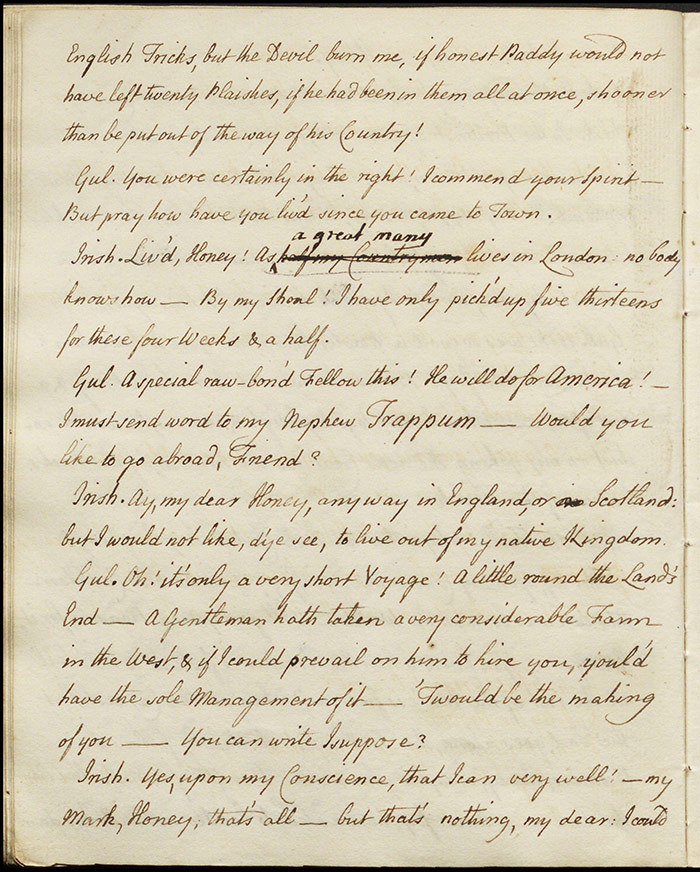 English Tricks, but the Devil burn me, if honest Paddy would not
have left twenty Plaishes, if he had been in them all at once, shooner
than be put out of the way of his Country!
Gul. You were certainly in the right! I commend your Spirit —
But pray how have you liv'd since you came to Town.
a great many
Irish. Liv'd, Honey! As half my Countrymen lives in London: no body
knows how — By my Shoul! I have only pick'd up five thirteens
for these four Weeks & a half.
Gul. A special raw-bon'd Fellow this! He will do for America! —
I must send word to my Nephew Trappum — Would you
like to go abroad, Friend?
Irish. Ay, my dear Honey, any way in England, or in Scotland:
but I would not like, d'ye see, to live out of my native Kingdom.
Gul. Oh! it's only a very short Voyage! A little round the Land's
End — A Gentleman hath taken a very considerable Farm
in the West, & if I could prevail on him to hire you, you'd
have the sole Management of it — 'Twould be the making
of you — You can write I suppose?
Irish. Yes, upon my Conscience, that I can very well! — my
Mark, Honey, that's all — but that's nothing, my dear: I could